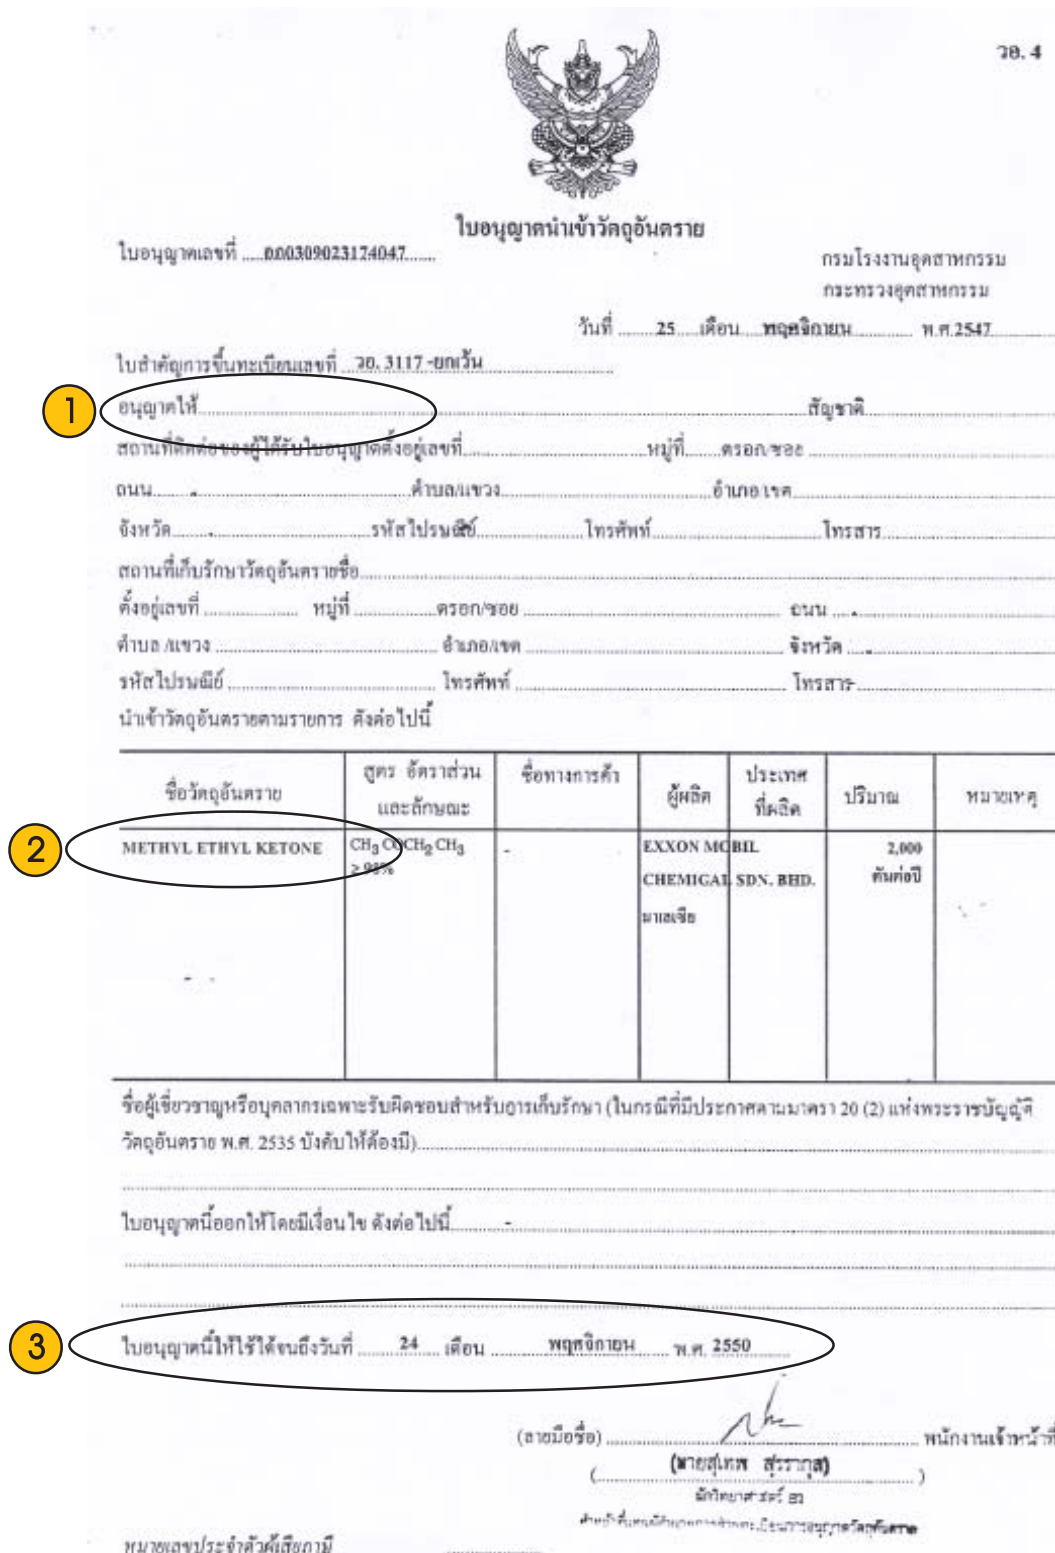 วอ. 4
ใบอนุญาตนำเข้าวัตถุอันตราย
ใบอนุญาตเลขที่ ....อก0309023174047.......
กรมโรงงานอุตสาหกรรม
กระทรวงอุตสาหกรรม
วันที่ ........25.....เดือน ....พฤศจิกายน............ พ.ศ.2547
ใบสำคัญการขึ้นทะเบียนเลขที่ ...วอ. 3117 -ยกเว้น
1
อนุญาตให้ สัญชาติ
สถานที่ติดต่อของผู้ได้รับใบอนุญาตตั้งอยู่เลขที่ หมู่ที่ ตรอก/ซอย
ถนน ตำบล/แขวง อำเภอ เขต
จังหวัด รหัสไปรษณีย์ โทรศัพท์ โทรสาร
สถานที่เก็บรักษาวัตถุอันตรายชื่อ
ตั้งอยู่เลขที่ หมู่ที่ ตรอก/ซอย ถนน
ตำบล /แขวง อำเภอ/เขต จังหวัด
รหัสไปรษณีย์ โทรศัพท์ โทรสาร
นำเข้าวัตถุอันตรายตามรายการ ดังต่อไปนี้
ชื่อวัตถุอันตราย สูตร อัตราส่วน และลักษณะ ชื่อทางการค้า ผู้ผลิต ประเทศ ที่ผลิต ปริมาณ หมายเหตุ
2
METHYL ETHYL KETONE CH3 COCH2 CH3 - EXXON MOBIL 2,000
≥ 98% CHEMICAL SDN. BHD. ตันต่อปี
มาเลเซีย
ชื่อผู้เชี่ยวชาญหรือบุคลากรเฉพาะรับผิดชอบสำหรับการเก็บรักษา (ในกรณีที่มีประกาศตามมาตรา 20 (2) แห่งพระราชบัญญัติ
วัตถุอันตราย พ.ศ. 2535 บังคับให้ต้องมี)
ใบอนุญาตนี้ออกให้โดยมีเงื่อนไข ดังต่อไปนี้ -
3
ใบอนุญาตนี้ให้ใช้ได้จนถึงวันที่ 24 เดือน พฤศจิกายน พ.ศ. 2550
(ลายมือชื่อ) พนักงานเจ้าหน้าที่
(นายสุเทพ)
นักวิทยาศาสตร์
หมายเลขประจำตัวผู้เสียภาษี